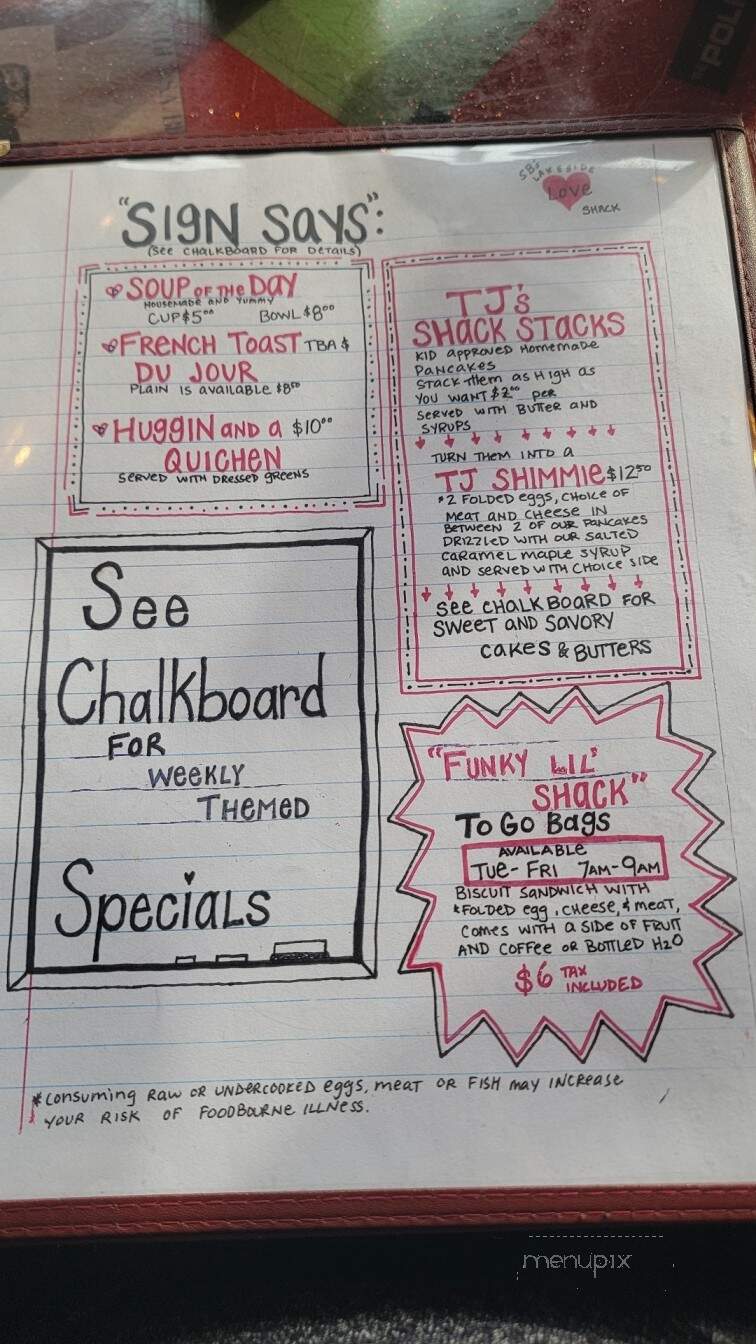 "POLI
SB's LAKESIDE
Love
SHACK
"SIGN SAYS":
(SEE CHALKBOARD FOR DETAILS)
SOUP OF THE DAY
HOUSEMADE AND YUMMY
CUP $5⁰⁰ BOWL $8⁰⁰
FRENCH TOAST TBA $
DU JOUR
PLAIN IS AVAILABLE $8⁵⁰
HUGGIN AND A $10⁰⁰
QUICHEN
SERVED WITH DRESSED GREENS
See
Chalkboard
FOR
WEEKLY
THEMED
Specials
TJ's
SHACK STACKS
KID APPROVED HOMEMADE
PANCAKES
STACK THEM AS HIGH AS
YOU WANT $2⁰⁰ PER
SERVED WITH BUTTER AND
SYRUPS
TURN THEM INTO A
TJ SHIMMIE $12⁵⁰
*2 FOLDED EGGS, CHOICE OF
MEAT AND CHEESE IN
BETWEEN 2 OF OUR PANCAKES
DRIZZLED WITH OUR SALTED
CARAMEL MAPLE SYRUP
AND SERVED WITH CHOICE SIDE
SEE CHALKBOARD FOR
SWEET AND SAVORY
CAKES & BUTTERS
"FUNKY LIL'
SHACK"
TO GO BAGS
AVAILABLE
TUE- FRI 7AM-9AM
BISCUIT SANDWICH WITH
*FOLDED EGG, CHEESE, & MEAT,
COMES WITH A SIDE OF FRUIT
AND COFFEE OR BOTTLED H2O
$6 TAX
INCLUDED
*CONSUMING RAW OR UNDERCOOKED EGGS, MEAT OR FISH MAY INCREASE
YOUR RISK OF FOODBOURNE ILLNESS.
menupix